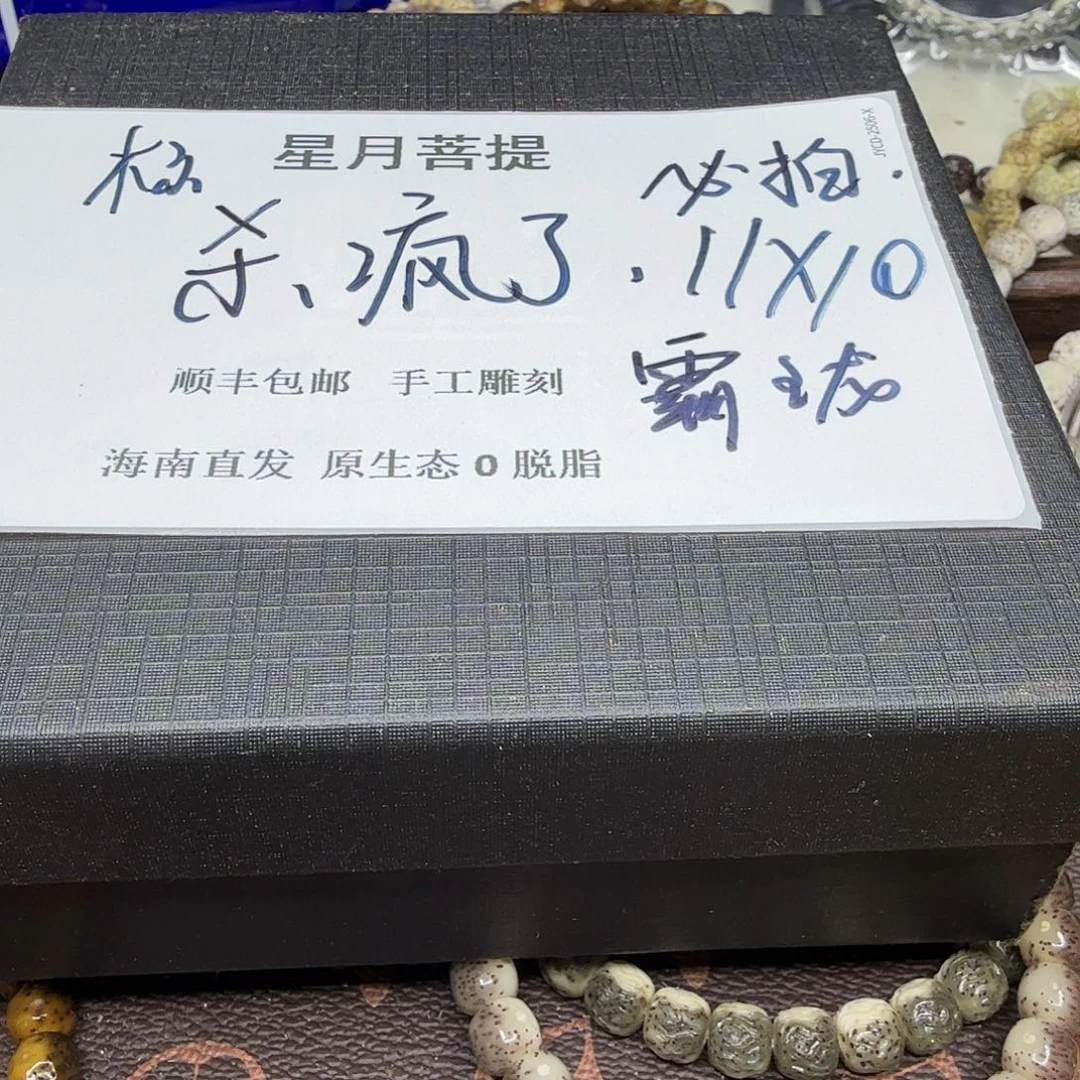 JYCD-2506-X
星月菩提
必拍.
杀、疯了.11X10
顺丰包邮 手工雕刻
霸王龙
海南直发 原生态0脱脂